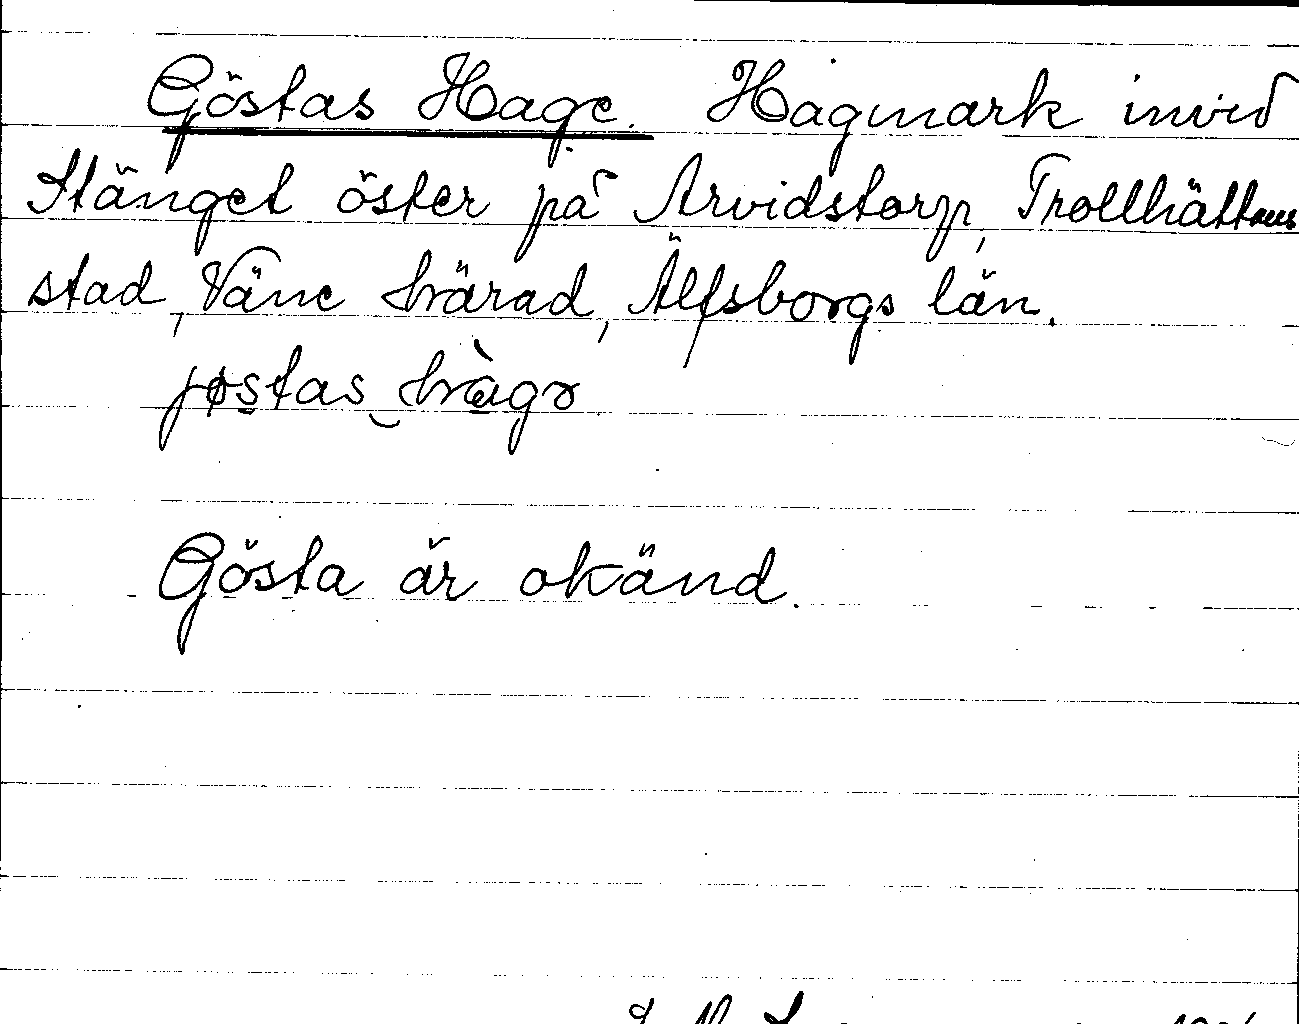 Göstas Hage. Hagmark invid
Stänget öster på Arvidstorp, Trollhättans
stad, Väne härad, Älfsborgs län.
jøstas hàgɤ
Gösta är okänd.